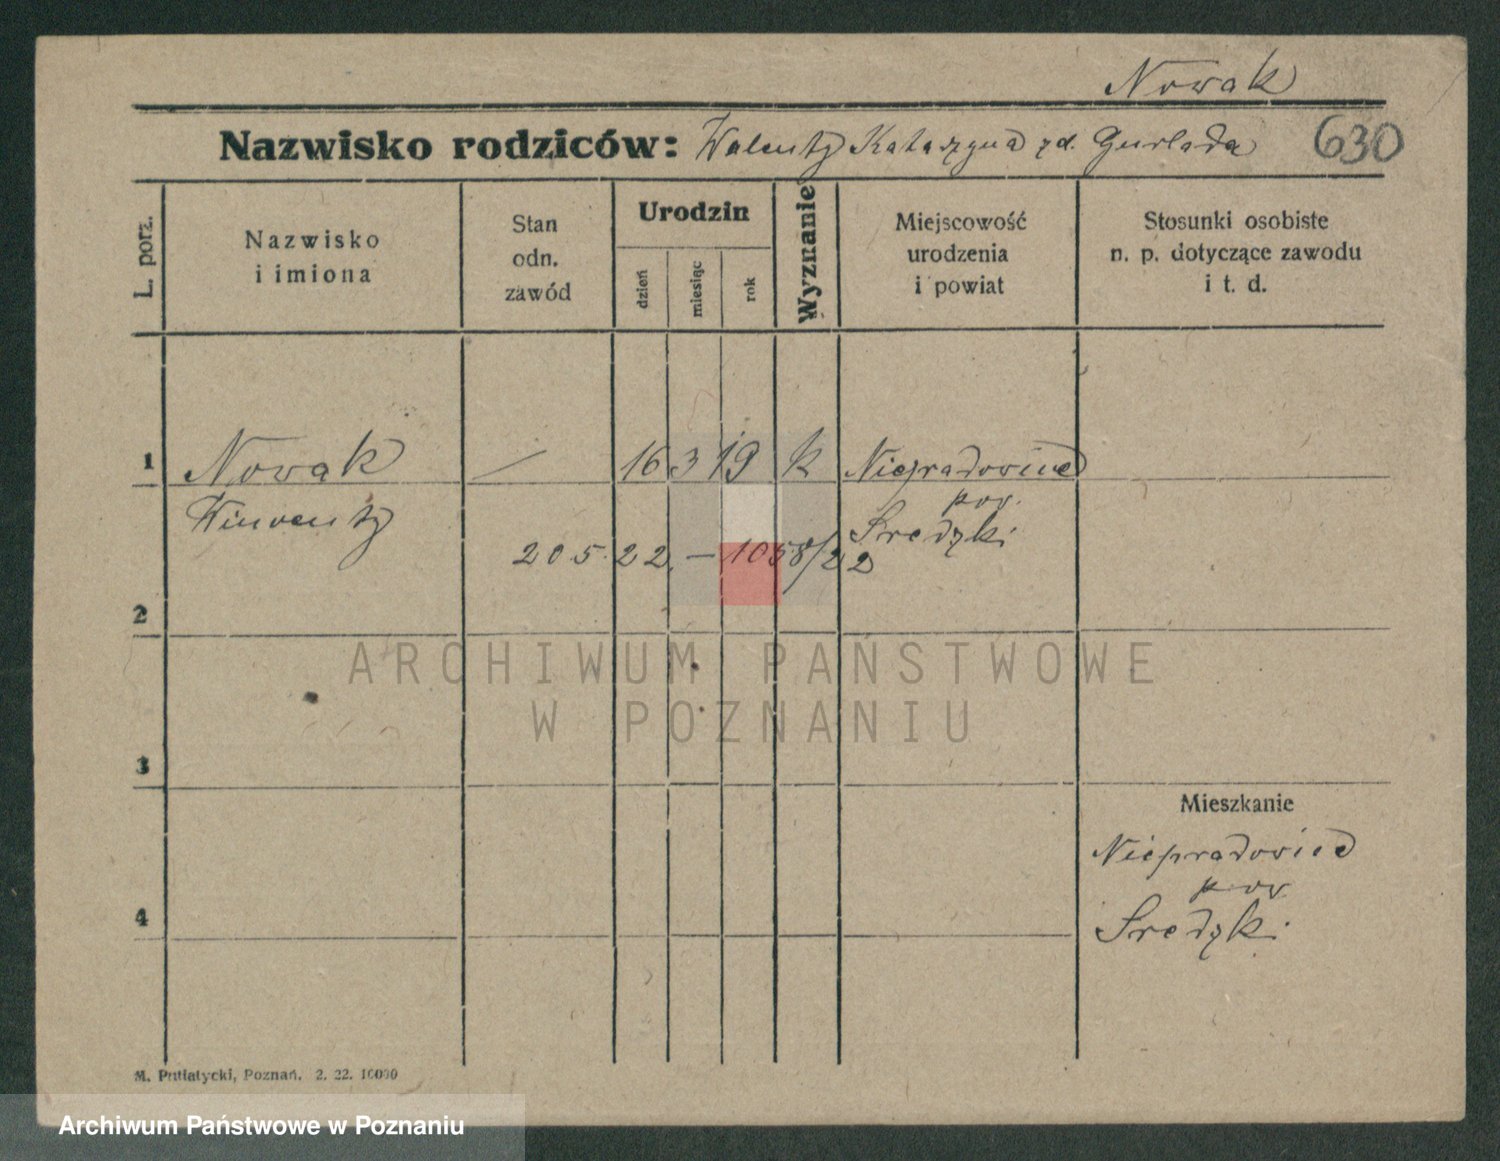 Nowak
Nazwisko rodziców: Walenty Katarzyna zd. Gurlada 630
L. porz.
Nazwisko
i imiona
Stan
odn.
zawód
Urodzin
dzień
miesiąc
rok
Wyznanie
Miejscowość
urodzenia
i powiat
Stosunki osobiste
n. p. dotyczące zawodu
i t. d.
1 Nowak — 16 3 19 k Niepradowice
Winventy pow.
Sredzki
20 5. 22. — 1058/22
2
ARCHIWUM PAŃSTWOWE
W POZNANIU
3
Mieszkanie
Niepradowice
pow
4 Sredzki.
M. Putiatycki, Poznań. 2. 22. 10000
Archiwum Państwowe w Poznaniu